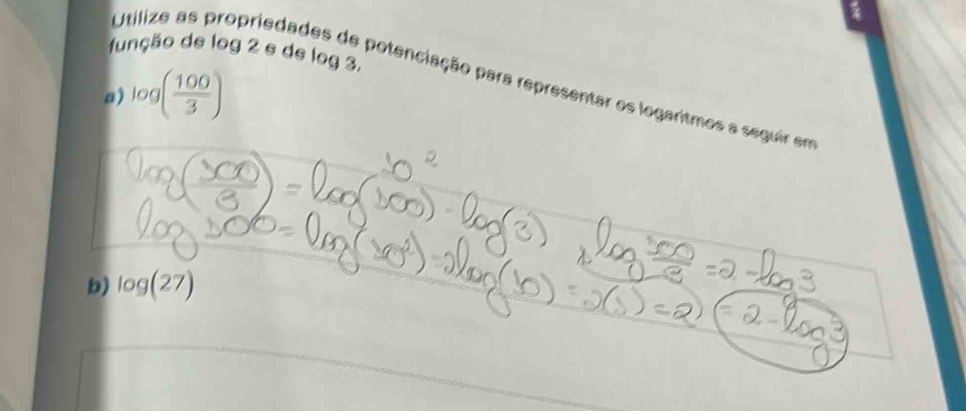 Utilize as propriedades de potenciação para representar os logaritmos a seguir em
função de log 2 e de log 3.
a) log(100/3)
log(100/3) = log(100) - log(3)
10²
log 100 = log(10²) = 2log(10) = 2(1) = 2
log 100/3 = 2 - log 3
= 2 - log 3
b) log(27)